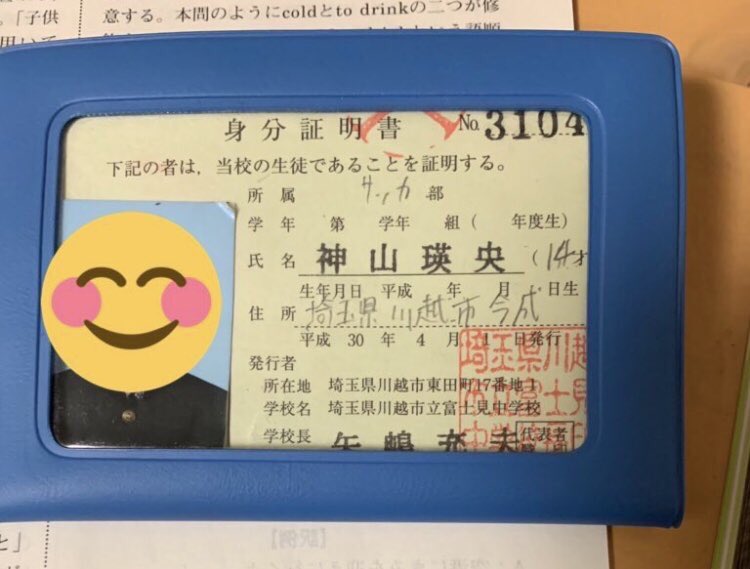 。「子供
意する。本問のようにcoldとto drinkの二つが修
用いて
身分証明書
No. 3104
下記の者は、当校の生徒であることを証明する。
所属 サッカ部
学年 第 学年 組( 年度生)
氏名 神山瑛央 (14才
生年月日 平成 年 月 日生
住所 埼玉県川越市今成
平成 30 年 4 月 1 日発行
発行者
所在地 埼玉県川越市東田町17番地1
学校名 埼玉県川越市立富士見中学校
学校長 矢嶋充夫
代表者
埼玉県川越
市立富士見
中学校
【訳例】